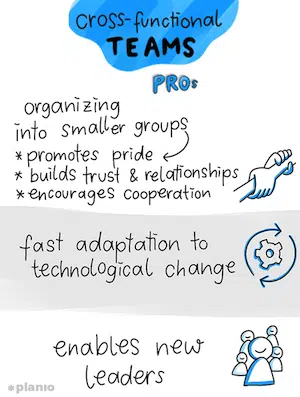 cross-functional
TEAMS
PROs
organizing
into smaller groups
* promotes pride
* builds trust & relationships
* encourages cooperation
fast adaptation to
technological change
enables new
leaders
*planio